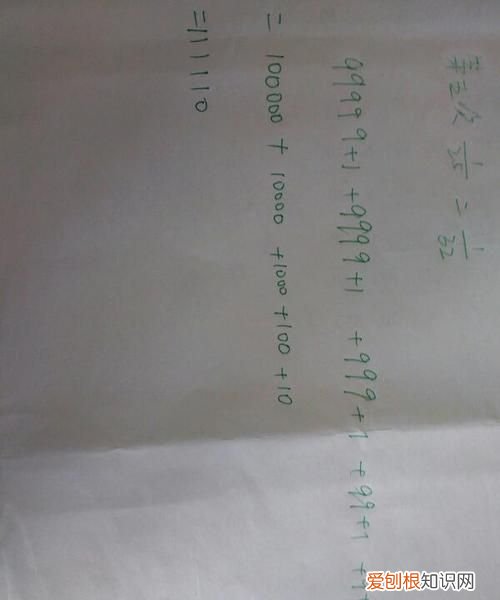 第五次 1/2⁵ = 1/32
99999+1+9999+1+999+1+99+1+9
= 100000+10000+1000+100+10
=111110
爱刨根知识网